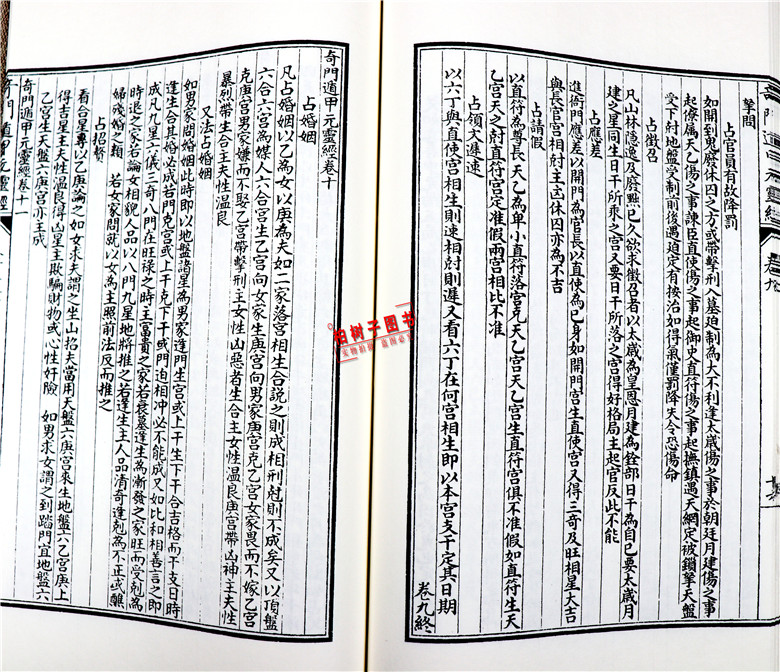 拏問
占官員有故降罰
如開到鬼廢休囚之方或帶擊刑入墓迫制為大不利逢太歲傷之事於朝廷月建傷之事
起僚属天乙傷之事諫臣直使傷之事起御史直符傷之事起撫鎮遇天網定被鎖拏天盤
受下尅地盤受制前後遇迫定有按治如得氣僅罰降失令恐傷命
占徵召
凡山林隱逸及廢黜已久欲求徵召者以太歲為皇恩月建為銓部日干為自己要太歲月
建之星同生日干所乘之宮又要日干所落之宮得好格局主起官反此不能
占應差
進衙門應差以開門為官長以直使為己身如開門宮生直使宮又得三奇及旺相星大吉
與長官宮相尅主凶休囚亦為不吉
占請假
以直符為尊長天乙為卑小直符落宮克天乙宮天乙宮生直符宮俱不准假如直符生天
乙宮天之尅直符宮定准假兩宮相比不准
占領文遲速
以六丁與直使宮相生則速相尅則遲又看六丁在何宮相生即以本宮支干定其日期
卷九終
奇門遁甲元靈經卷十
占婚姻
凡占婚姻以乙為女以庚為夫如二家落宮相生合説之則成相刑尅則不成矣又以頂盤
六合六宮為媒人六合宮生乙宮向女家生庚宮向男家庚宮克乙宮女家畏而不嫁乙宮
克庚宮男家嫌而不娶乙宮帶擊刑主女性凶惡者生合主女性温良庚宮帶凶神主夫性
暴烈帶生合主夫性温良
又法占婚姻
如男家問婚姻此時即以地盤諸星為男家逢門生宮或上干生下干合吉格而干支日時
逢生合其婚必成若門克宮或上干克下干或門迫相冲必不能成又如比和相善言之即
成凡九星六儀三奇八門在旺禄之時主富貴之家若衰墓逢生為漸發之家旺而受剋為
時退之家若論女相貌人品以八門九星地將推之若逢生主人品清奇逢剋為不正或醮
婦殘婚之類　若女家問就以女為主照前法反而推之
占招贅
看合星專以乙庚論之如女求夫謂之坐山招夫當用天盤六庚宮來生地盤六乙宮庚上
得吉星主夫性温良得凶星主欺騙財物或心性奸險　如男求女謂之到踏門宜地盤六
乙宮生天盤六庚宮亦主成
奇門遁甲元靈經卷十一
奇門遁甲元靈經
柏树子图书
实物拍摄 盗图必究